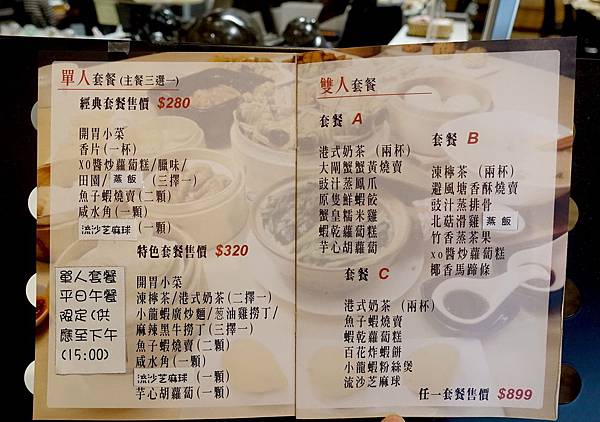 單人套餐(主餐三選一)
經典套餐售價 $280
開胃小菜
香片(一杯)
xo醬炒蘿蔔糕/臘味/
田園/蒸飯(三擇一)
魚子蝦燒賣(二顆)
咸水角(一顆)
流沙芝麻球(一顆)
特色套餐售價 $320
開胃小菜
涷檸茶/港式奶茶(二擇一)
小龍蝦廣炒麵/葱油雞撈丁/
麻辣黑牛撈丁(三擇一)
魚子蝦燒賣(二顆)
咸水角(一顆)
流沙芝麻球(一顆)
芋心胡蘿蔔(一顆)
單人套餐
平日午餐
限定(供
應至下午
(15:00)
雙人套餐
套餐 A
港式奶茶(兩杯)
大閘蟹蟹黃燒賣
豉汁蒸鳳爪
原隻鮮蝦餃
蟹皇糯米雞
蝦乾蘿蔔糕
芋心胡蘿蔔
套餐 B
涷檸茶(兩杯)
避風塘香酥燒賣
豉汁蒸排骨
北菇滑雞蒸飯
竹香蒸茶果
xo醬炒蘿蔔糕
椰香馬蹄條
套餐 C
港式奶茶(兩杯)
魚子蝦燒賣
蝦乾蘿蔔糕
百花炸蝦餅
小龍蝦粉絲煲
流沙芝麻球
任一套餐售價 $899